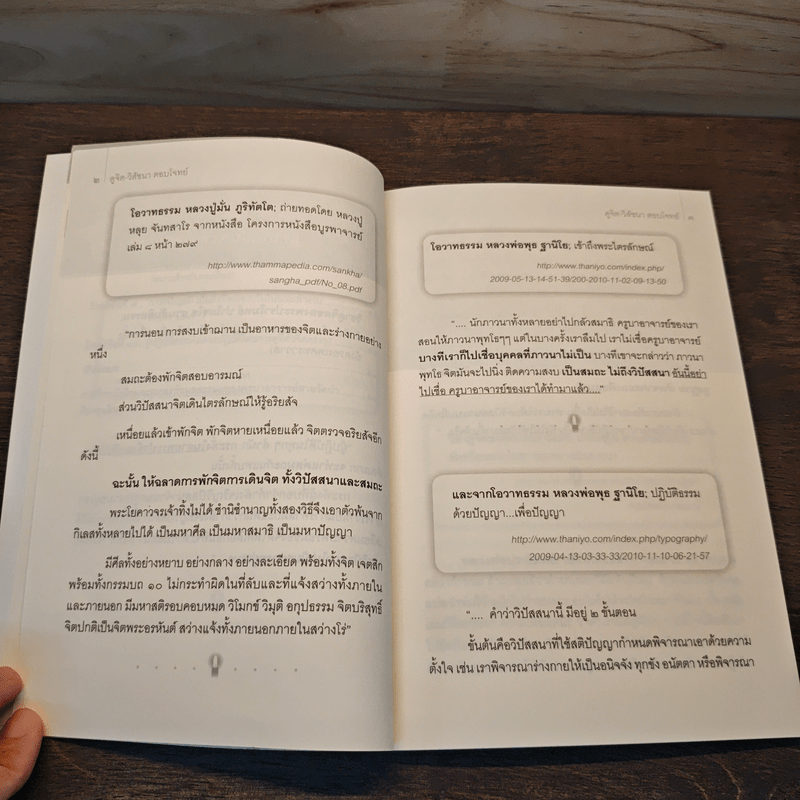 ๒ ดูจิต-วิสัชนา ตอบโจทย์
โอวาทธรรม หลวงปู่มั่น ภูริทัตโต; ถ่ายทอดโดย หลวงปู่
หลุย จันทสาโร จากหนังสือ โครงการหนังสือบูรพาจารย์
เล่ม ๘ หน้า ๒๗๙
http://www.thammapedia.com/sankha/
sangha_pdf/No_08.pdf
"การนอน การสงบเข้าฌาน เป็นอาหารของจิตและร่างกายอย่าง
หนึ่ง
สมถะต้องพักจิตสอบอารมณ์
ส่วนวิปัสสนาจิตเดินไตรลักษณ์ให้รู้อริยสัจ
เหนื่อยแล้วเข้าพักจิต พักจิตหายเหนื่อยแล้ว จิตตรวจอริยสัจอีก
ดังนี้
ฉะนั้น ให้ฉลาดการพักจิตการเดินจิต ทั้งวิปัสสนาและสมถะ
พระโยคาวจรเจ้าทิ้งไม่ได้ ชำนิชำนาญทั้งสองวิธีจึงเอาตัวพ้นจาก
กิเลสทั้งหลายไปได้ เป็นมหาศีล เป็นมหาสมาธิ เป็นมหาปัญญา
มีศีลทั้งอย่างหยาบ อย่างกลาง อย่างละเอียด พร้อมทั้งจิต เจตสิก
พร้อมทั้งกรรมบถ ๑๐ ไม่กระทำผิดในที่ลับและที่แจ้งสว่างทั้งภายใน
และภายนอก มีมหาสติรอบคอบหมด วิโมกข์ วิมุติ อกุปธรรม จิตบริสุทธิ์
จิตปกติเป็นจิตพระอรหันต์ สว่างแจ้งทั้งภายนอกภายในสว่างโร่"
ดูจิต-วิสัชนา ตอบโจทย์ ๓
โอวาทธรรม หลวงพ่อพุธ ฐานิโย; เข้าถึงพระไตรลักษณ์
http://www.thaniyo.com/index.php/
2009-05-13-14-51-39/200-2010-11-02-09-13-50
".... นักภาวนาทั้งหลายอย่าไปกลัวสมาธิ ครูบาอาจารย์ของเรา
สอนให้ภาวนาพุทโธๆๆ แต่ในบางครั้งเราลืมไป เราไม่เชื่อครูบาอาจารย์
บางทีเราก็ไปเชื่อบุคคลที่ภาวนาไม่เป็น บางทีเขาจะกล่าวว่า ภาวนา
พุทโธ จิตมันจะไปนิ่ง ติดความสงบ เป็นสมถะ ไม่ถึงวิปัสสนา อันนี้อย่า
ไปเชื่อ ครูบาอาจารย์ของเราได้ทำมาแล้ว...."
และจากโอวาทธรรม หลวงพ่อพุธ ฐานิโย; ปฏิบัติธรรม
ด้วยปัญญา...เพื่อปัญญา
http://www.thaniyo.com/index.php/typography/
2009-04-13-03-33-33/2010-11-10-06-21-57
".... คำว่าวิปัสสนานี้ มีอยู่ ๒ ขั้นตอน
ขั้นต้นคือวิปัสสนาที่ใช้สติปัญญากำหนดพิจารณาเอาด้วยความ
ตั้งใจ เช่น เราพิจารณาร่างกายให้เป็นอนิจจัง ทุกขัง อนัตตา หรือพิจารณา